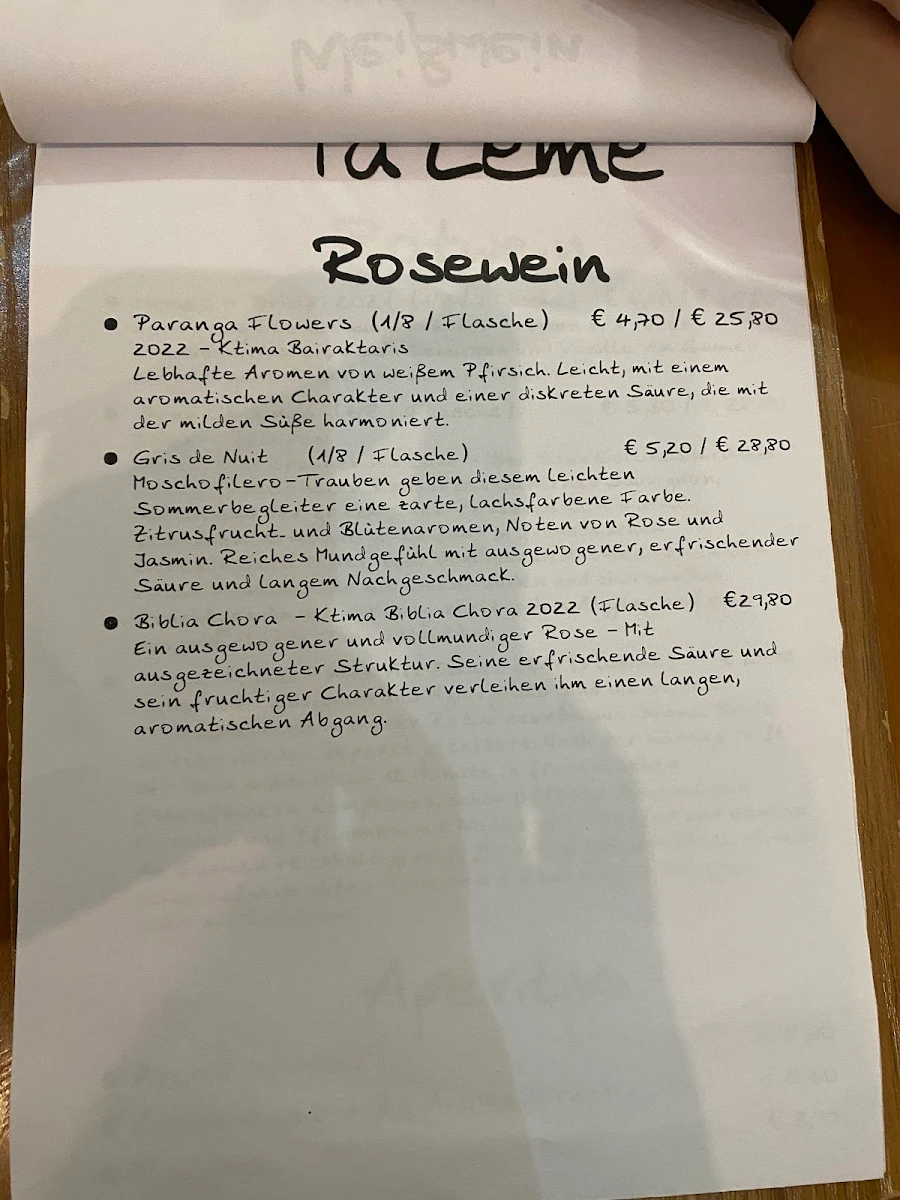 Weißwein
Ta Leme
Rosewein
• Paranga Flowers (1/8 / Flasche) € 4,70 / € 25,80
2022 – Ktima Bairaktaris
Lebhafte Aromen von weißem Pfirsich. Leicht, mit einem
aromatischen Charakter und einer diskreten Säure, die mit
der milden Süße harmoniert.
• Gris de Nuit (1/8 / Flasche) € 5,20 / € 28,80
Moschofilero-Trauben geben diesem leichten
Sommerbegleiter eine zarte, lachsfarbene Farbe.
Zitrusfrucht- und Blütenaromen, Noten von Rose und
Jasmin. Reiches Mundgefühl mit ausgewogener, erfrischender
Säure und langem Nachgeschmack.
• Biblia Chora – Ktima Biblia Chora 2022 (Flasche) €29,80
Ein ausgewogener und vollmundiger Rose – Mit
ausgezeichneter Struktur. Seine erfrischende Säure und
sein fruchtiger Charakter verleihen ihm einen langen,
aromatischen Abgang.